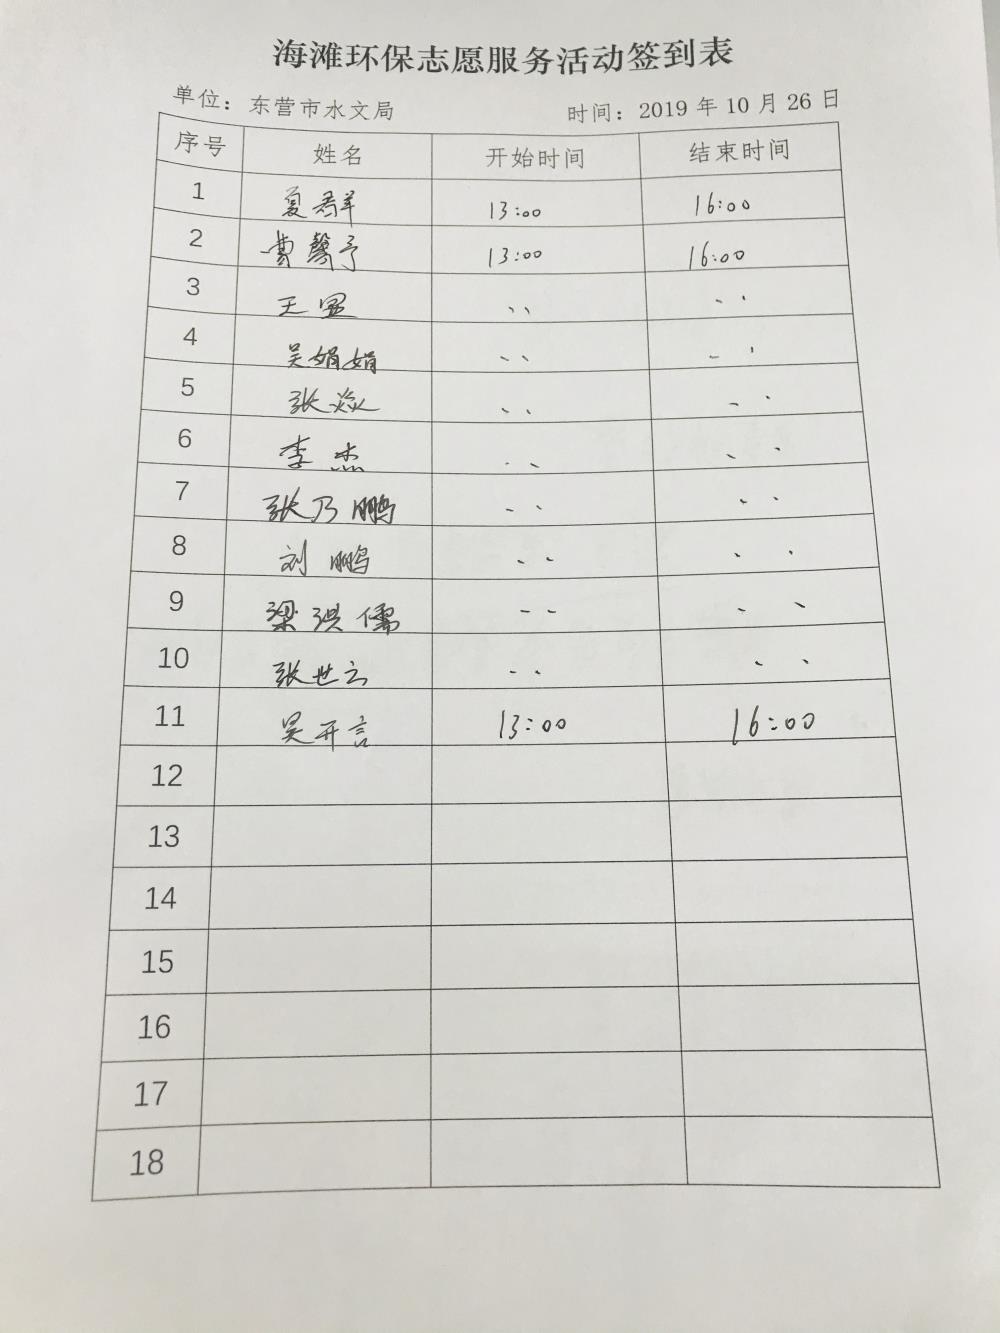 海滩环保志愿服务活动签到表
单位：东营市水文局 时间：2019 年 10 月 26 日
序号 姓名 开始时间 结束时间
1 夏群 13:00 16:00
2 曹馨予 13:00 16:00
3 王 〃 〃
4 吴娟娟 〃 〃
5 张焱 〃 〃
6 李杰 〃 〃
7 张乃鹏 〃 〃
8 刘鹏 〃 〃
9 梁洪儒 〃 〃
10 张世云 〃 〃
11 吴开言 13:00 16:00
12
13
14
15
16
17
18